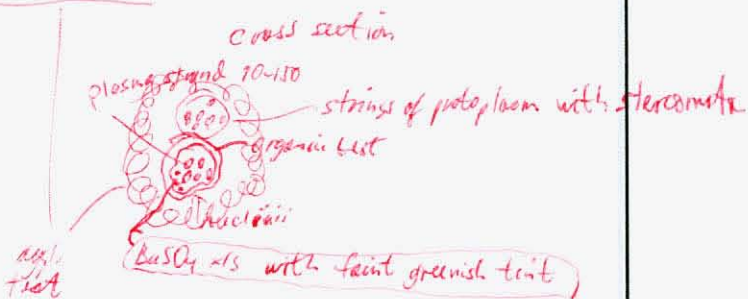 cross section
plasma strand 90-150
strings of protoplasm with stercomata
organic test
nucleii
aggl. test
BaSO4 xls with faint greenish tint